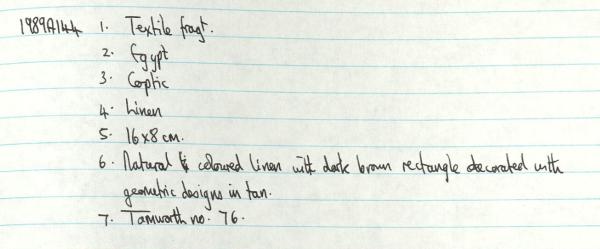 1989A144 1. Textile fragt.
2. Egypt
3. Coptic
4. Linen
5. 16x8cm.
6. Natural coloured linen with dark brown rectangle decorated with
geometric designs in tan.
7. Tamworth no. 76.